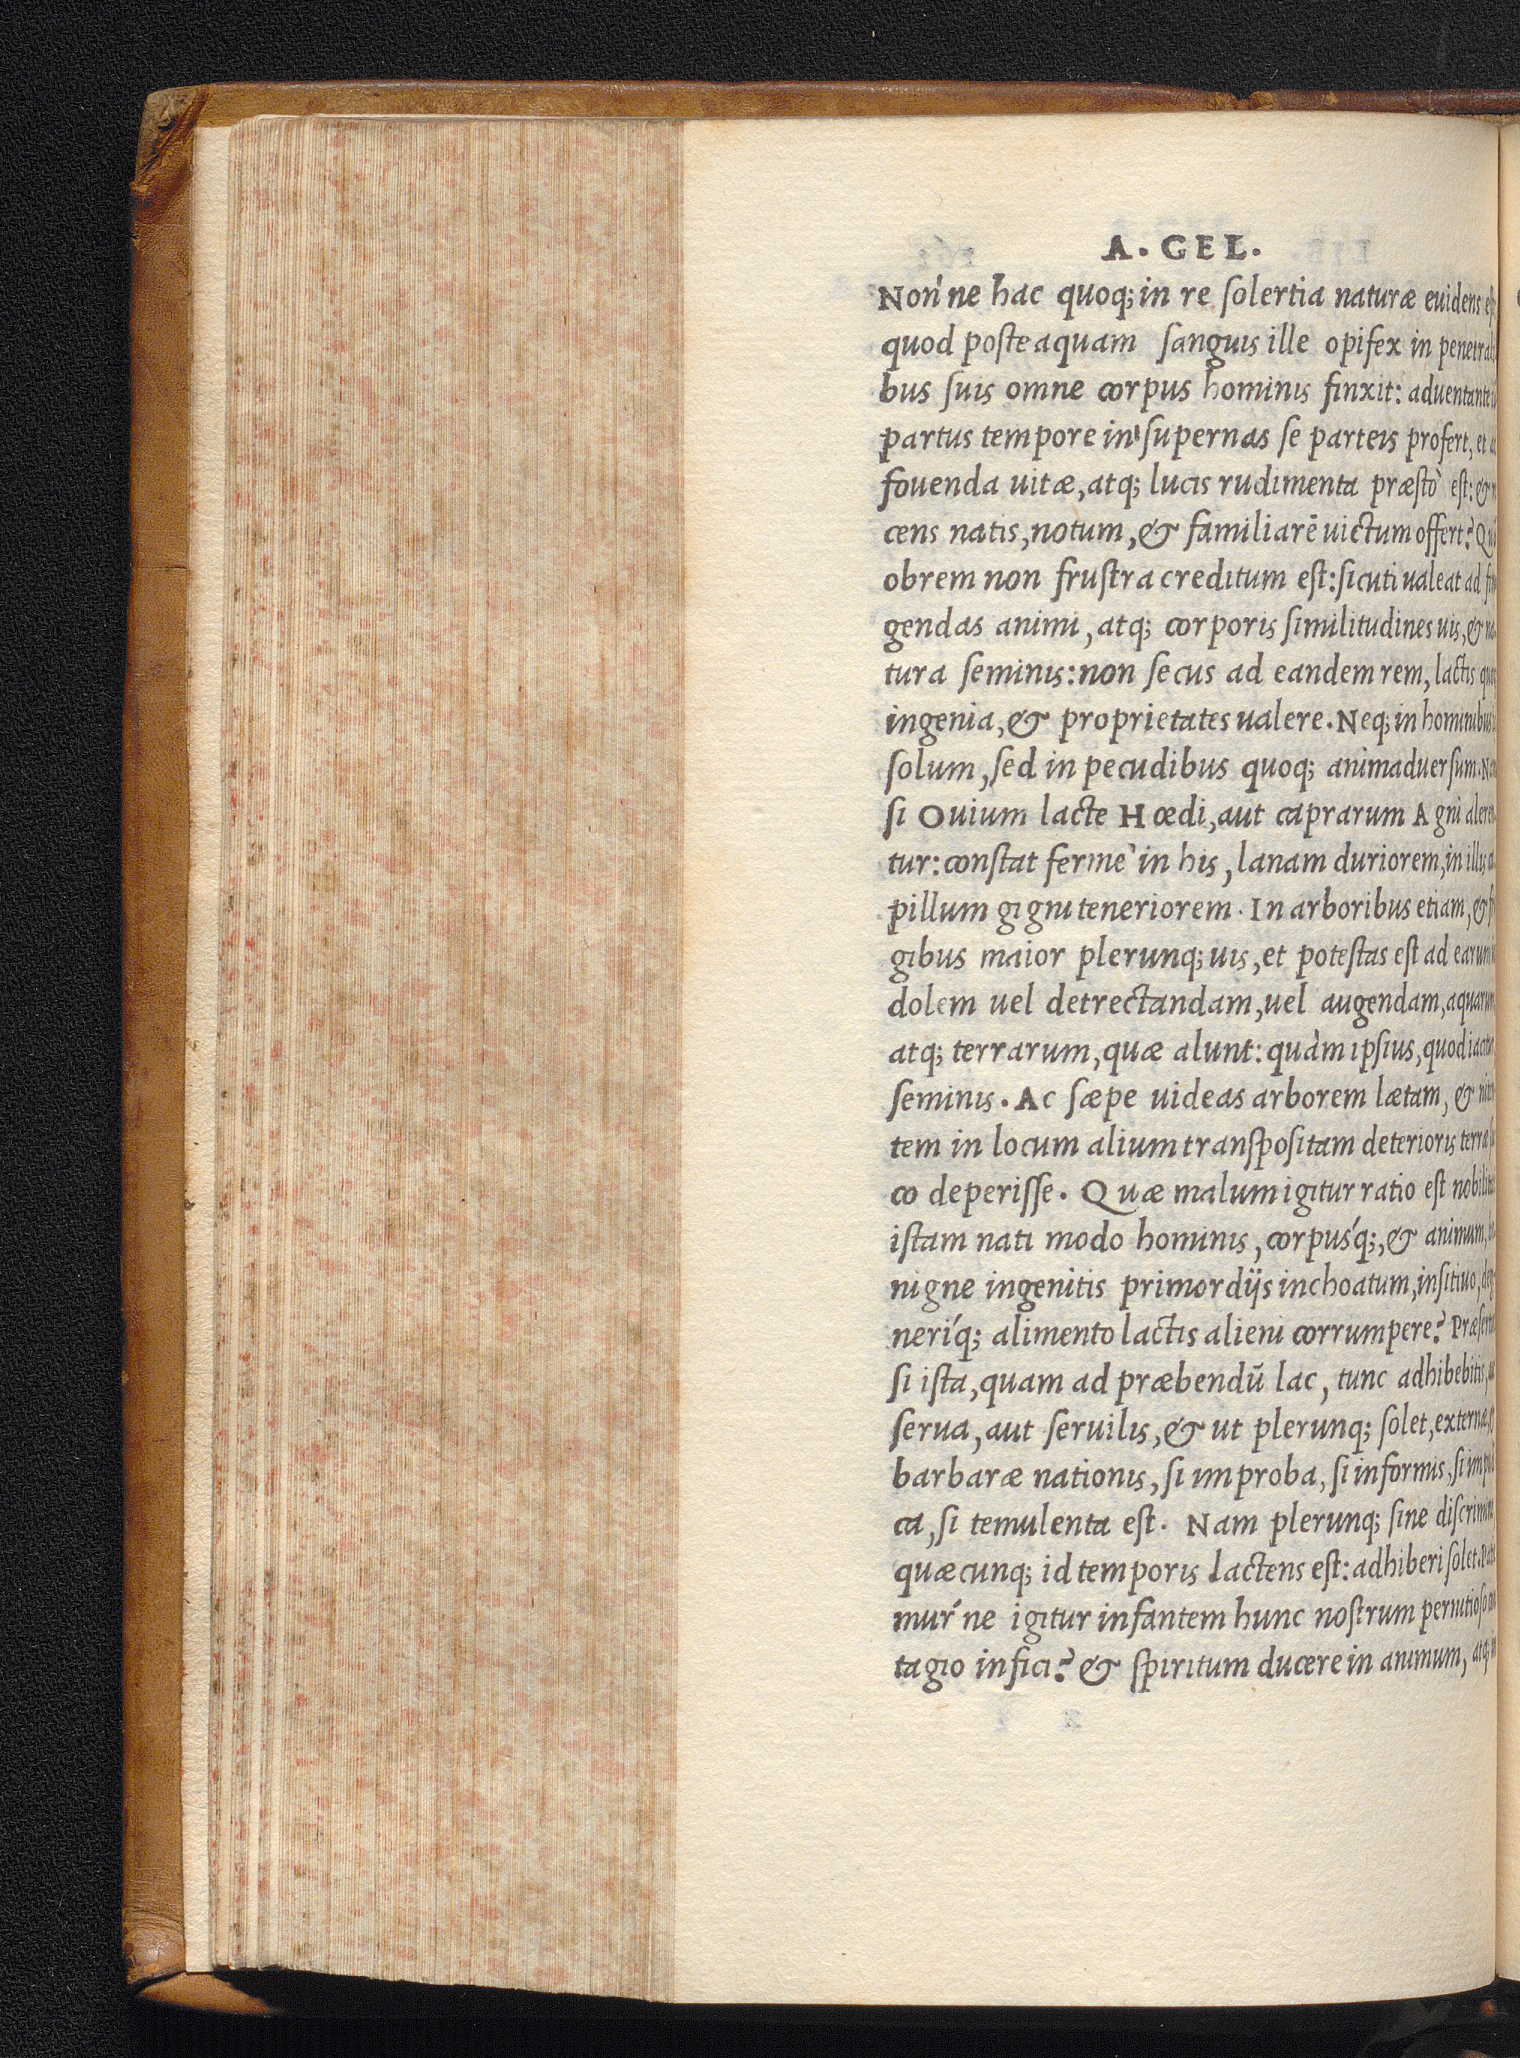 A. GEL.
Non'ne hac quoq; in re solertia naturæ euidens
quod posteaquam sanguis ille opifex in
bus suis omne corpus hominis finxit: aduentante
partus tempore in supernas se parteis profert, et
fouenda uitæ, atq; lucis rudimenta præstò est: &
cens natis, notum, & familiarē uictum offert?
obrem non frustra creditum est: sicuti ualeat ad
gendas animi, atq; corporis similitudines uis, &
tura seminis: non secus ad eandem rem, lactis
ingenia, & proprietates ualere. Neq; in hominibus
solum, sed in pecudibus quoq; animaduersum.
si Ouium lacte Hœdi, aut caprarum Agni
tur: constat fermè in his, lanam duriorem, in illis
pillum gigni teneriorem. In arboribus etiam, &
gibus maior plerunq; uis, et potestas est ad earum
dolem uel detrectandam, uel augendam, aquarum
atq; terrarum, quæ alunt: quàm ipsius, quod
seminis. Ac sæpe uideas arborem lætam, &
tem in locum alium transpositam deterioris terræ
co deperisse. Quæ malum igitur ratio est
istam nati modo hominis, corpus'q;, & animum,
nigne ingenitis primordijs inchoatum, insitiuo,
neri'q; alimento lactis alieni corrumpere?
si ista, quam ad præbendū lac, tunc adhibebitis,
serua, aut seruilis, & ut plerunq; solet, externæ,
barbaræ nationis, si improba, si informis, si
ca, si temulenta est. Nam plerunq; sine
quæcunq; id temporis lactens est: adhiberi solet.
mur'ne igitur infantem hunc nostrum
tagio infici? & spiritum ducere in animum, atq;